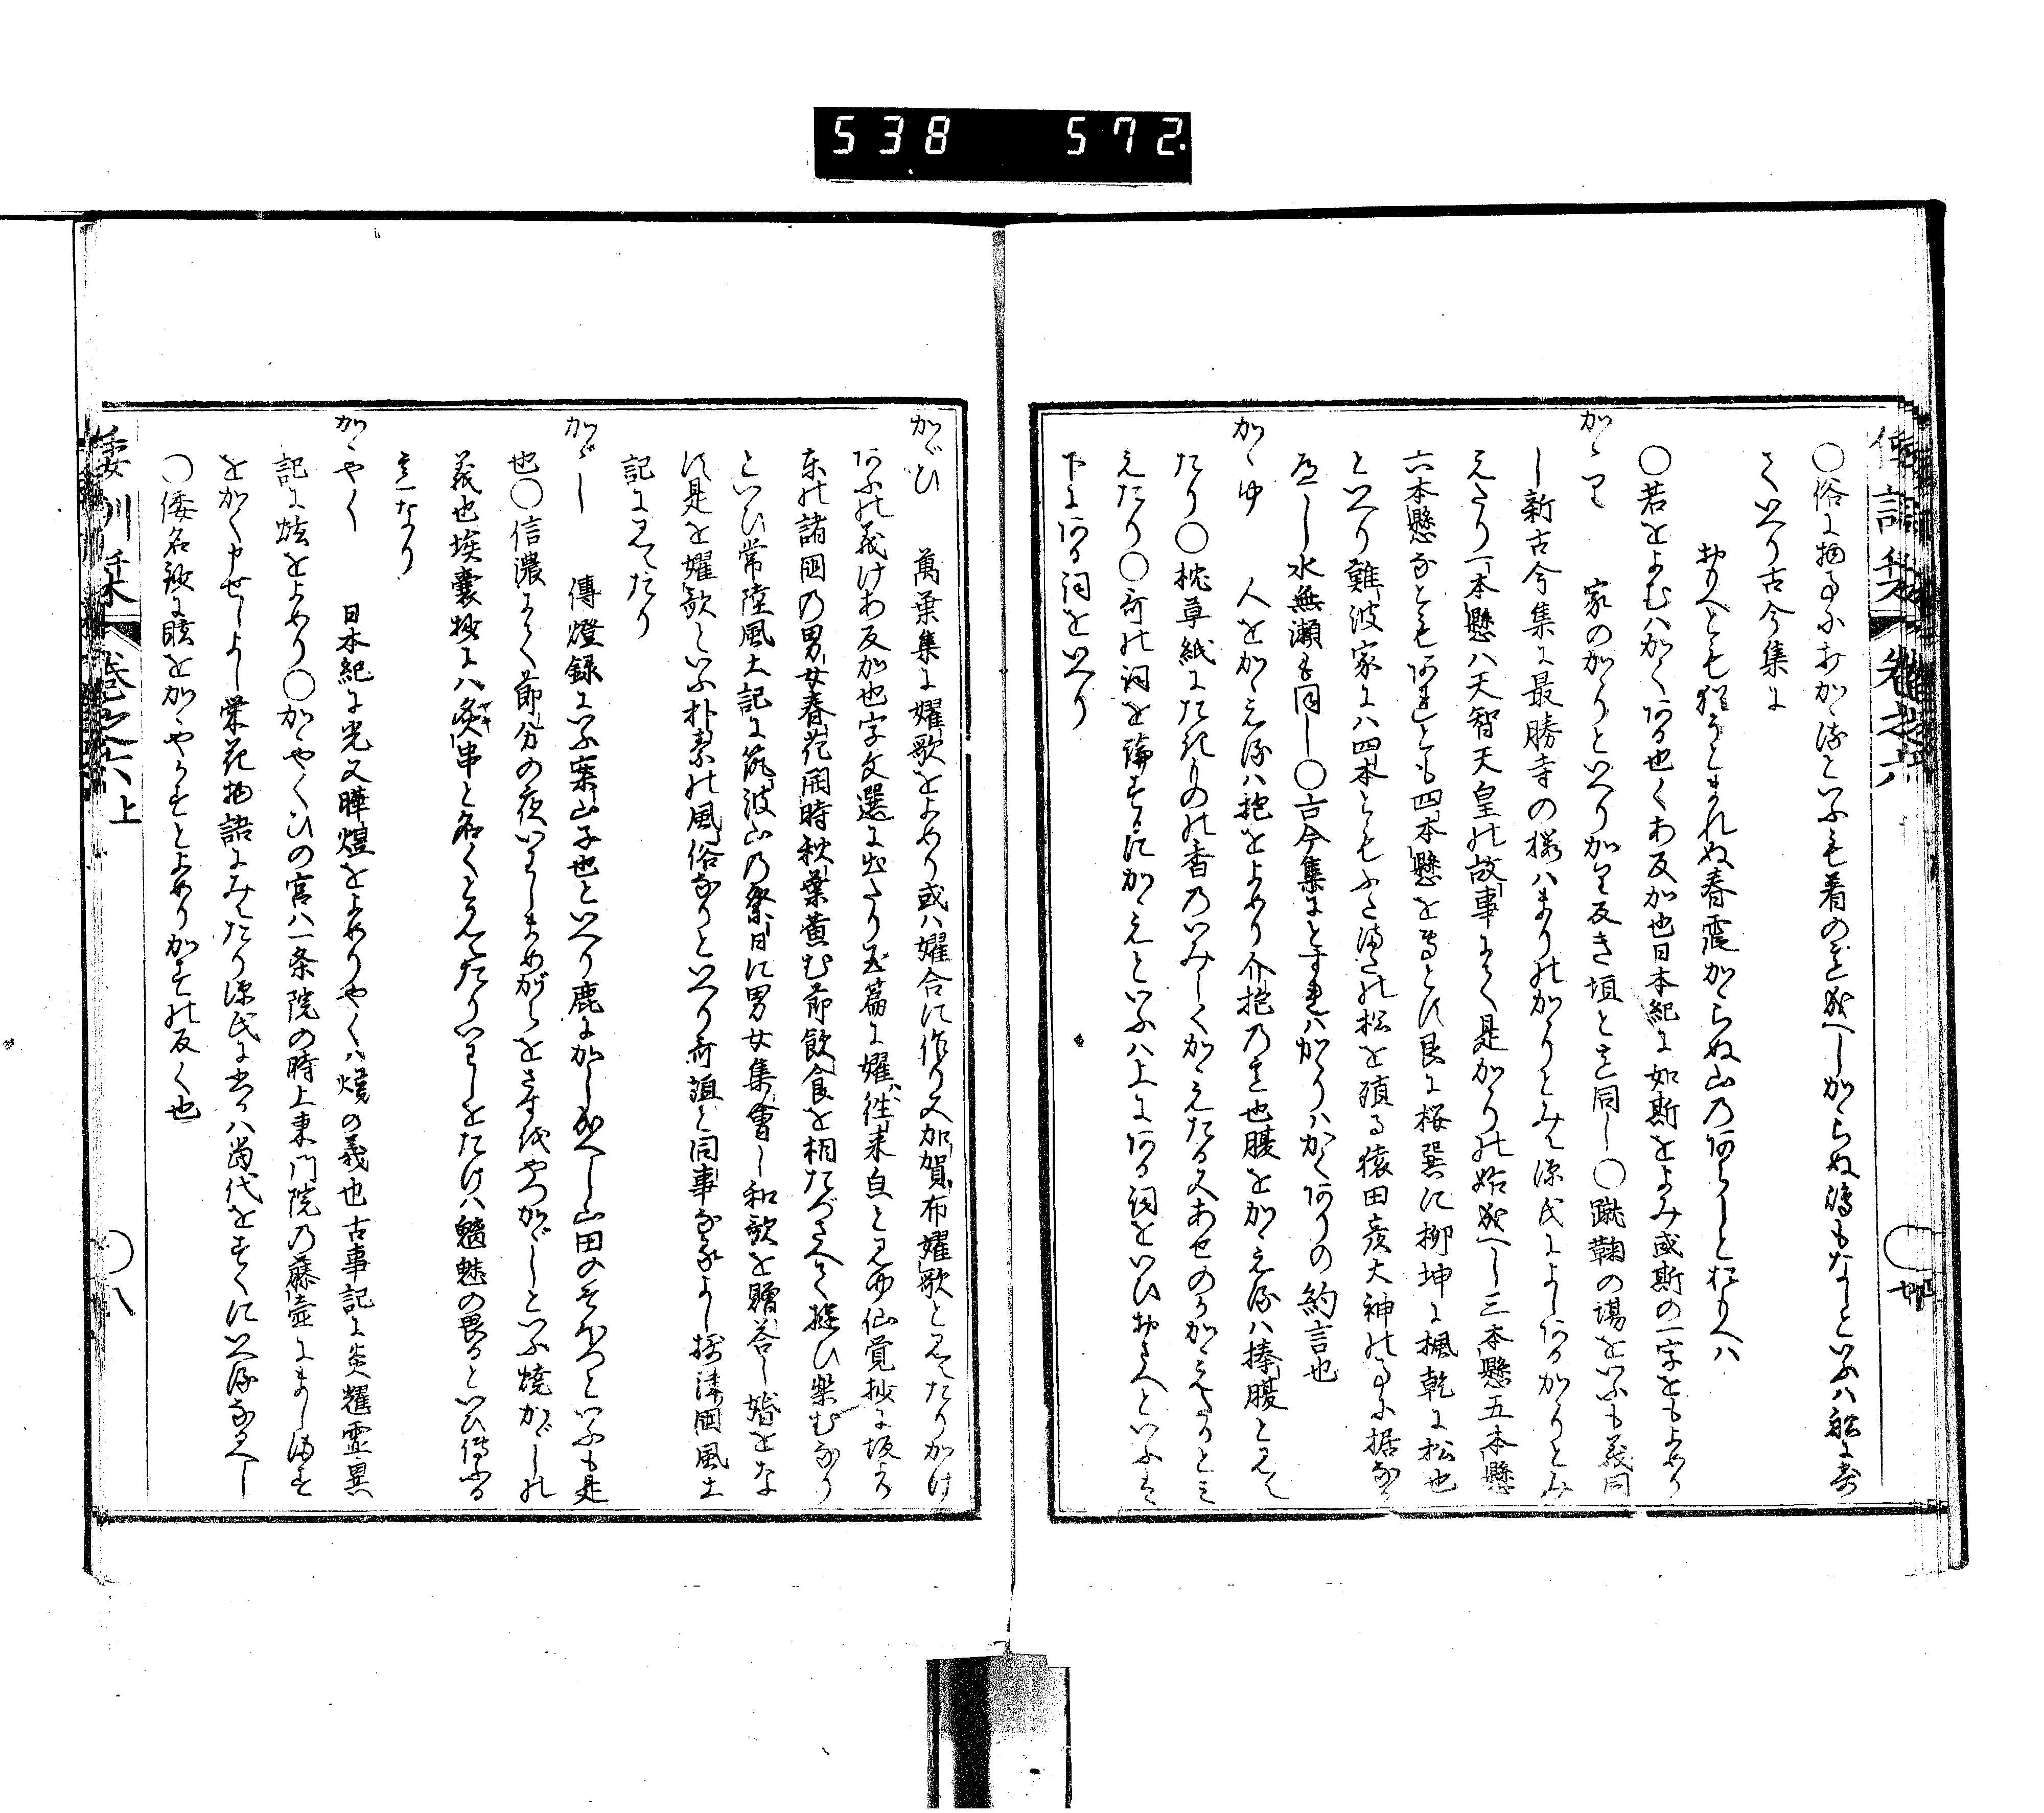 538 572
○俗に物事にかゝるといふも着の意成へしかゝらぬ嶋もなしといふハ船に寄
ていへり古今集に
○若をよむハかくある也くあ反加也日本紀に如斯をよみ或斯の一字をもよめり
かゝり 家のかゝりといへり加り反き垣と意同し○蹴鞠の場をいふも義同
し新古今集に最勝寺の桜ハまりのかゝりとみえ源氏によしあるかゝりとみ
えたり一本懸ハ天智天皇の故事にて是かゝりの始成へし三本懸五本懸
六本懸なともあれとも四本懸を専とす艮に桜巽に柳坤に楓乾に松也
といへり難波家にハ四本ともふたまたの松を殖る猿田彦大神の事に据な
るへし水無瀬も同し○古今集にとすれハかゝりハかくありの約言也
かゝゆ 人をかゝえるハ抱をよめり介抱の意也腹をかゝえるハ捧腹とみえ
たり○枕草紙にたきものの香のいみしくかゝえたる又あせのかかゝえたりとみ
えたり○哥の詞を論するにかゝえといふハ上にある詞をいひおさへといふは
下にある詞をいへり
倭訓栞 巻之六上 ○八
かゞひ 萬葉集に嬥歌をよめり或ハ嬥合に作り又加賀布嬥歌とみえたりかけ
あふの義けあ反加也字文選に出たり玉篇に嬥ハ往来皃とみゆ仙覚抄に坂より
東の諸国の男女春花開時秋葉黄む節飲食を相たづさへて遊ひ楽むなり
といひ常陸風土記に筑波山の祭日に男女集會し和歌を贈答し婚をな
す是を嬥歌といふ朴素の風俗なりといへり哥垣と同事なるよし摂津国風土
記にみえたり
かゞし 傳燈録にいふ案山子也といへり鹿おかし成へし山田のそほつといふも是
也○信濃にて節分の夜いわしまめがらをさすをやつかゞしといふ焼かゞしの
義也埃嚢抄にハ炙串と名くとみえたりいわしをたけハ魑魅の畏るといひ傳ふる
意なり
かゝやく 日本紀に光又曄煌をよめりやくハ熿の義也古事記に炎耀霊異
記に炫をよめり○かゝやくひの宮ハ一条院の時上東門院の藤壺にまします
をかく申せしよし栄花物語にみえたり源氏に出るハ當代をすくにいへるなるへし
○倭名鈔に眩をかゝやかすとよめりかすの反く也